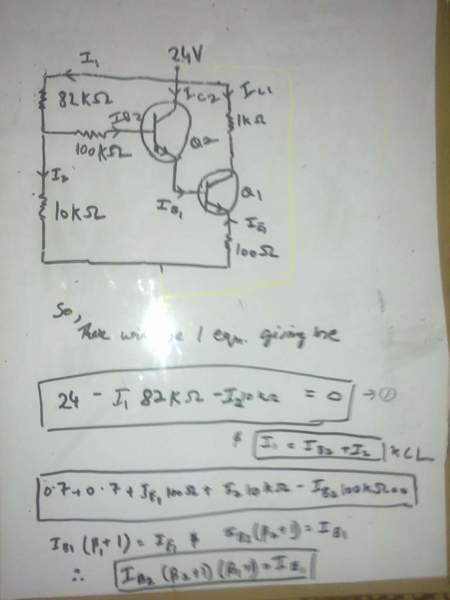 24V
I₁
I_C2
I_C1
82KΩ
I_B2
1KΩ
100KΩ
Q2
I₂
Q1
I_B1
I_E1
10KΩ
100Ω
So,
There will be 1 eqn. giving be
24 - I₁ 82KΩ - I₂10KΩ = 0 → ①
& I₁ = I_B2 + I₂ KCL
0.7 + 0.7 + I_E1 100Ω + I₂ 10KΩ - I_B2 100KΩ
I_B1 (β₁+1) = I_E1 & I_B2 (β₂+1) = I_B1
∴ I_B2 (β₂+1) (β₁+1) = I_E1